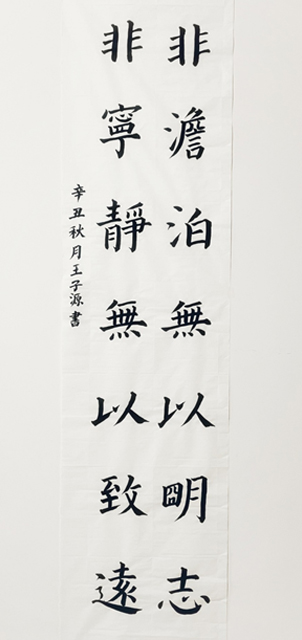 非澹泊無以明志
非寧靜無以致遠
辛丑秋月王子源書